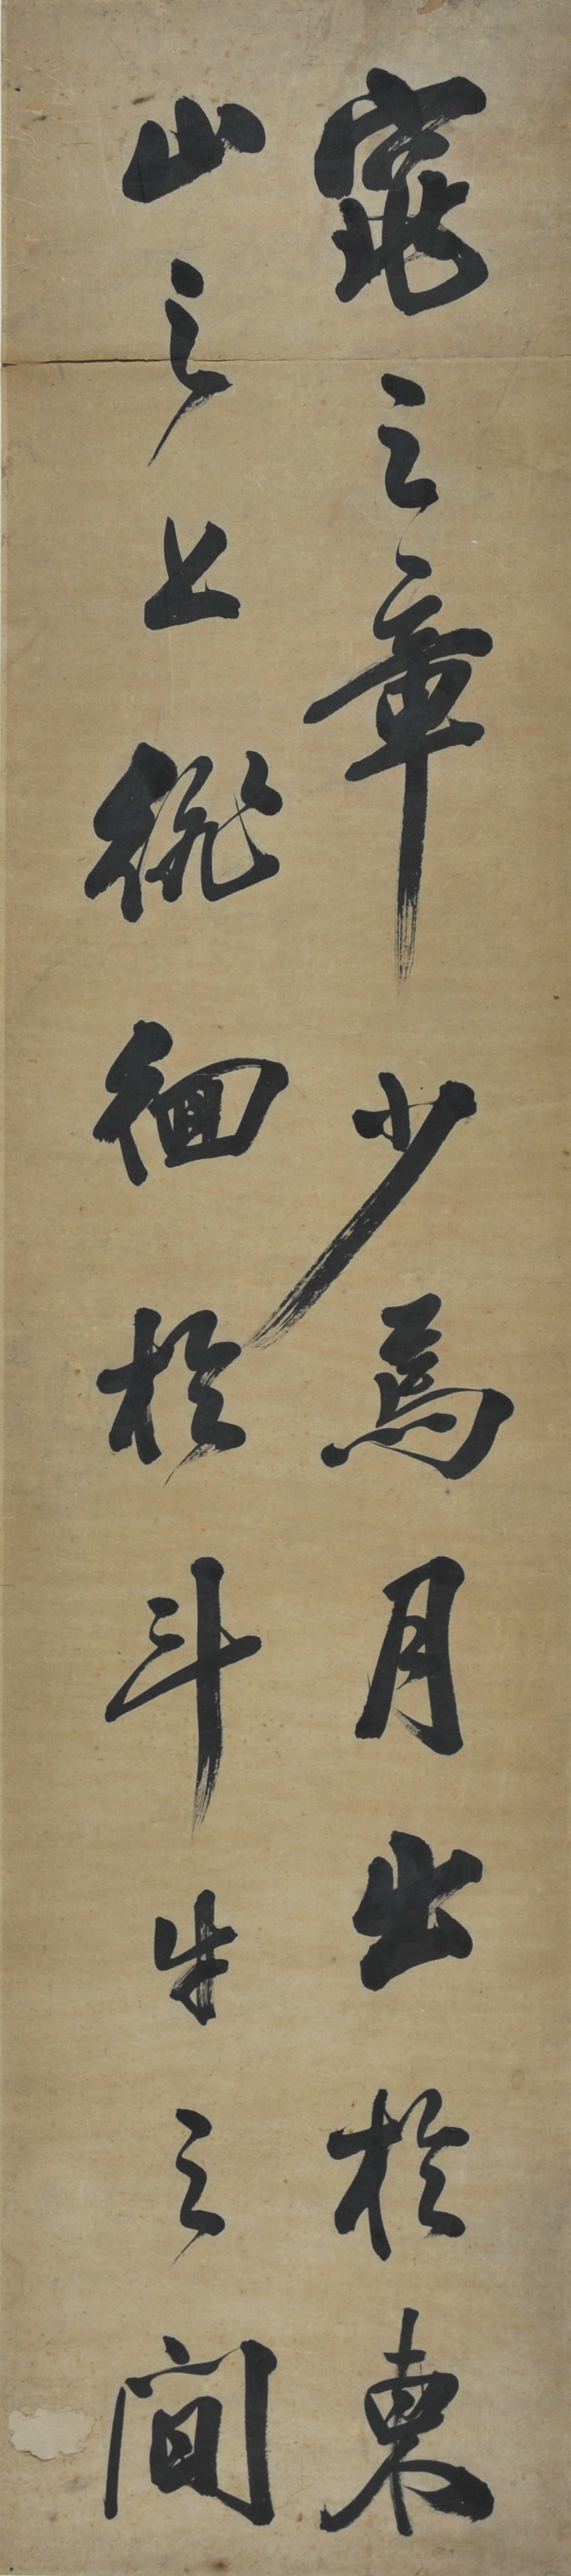 窕之章少焉月出於東
山之上徘徊於斗牛之間